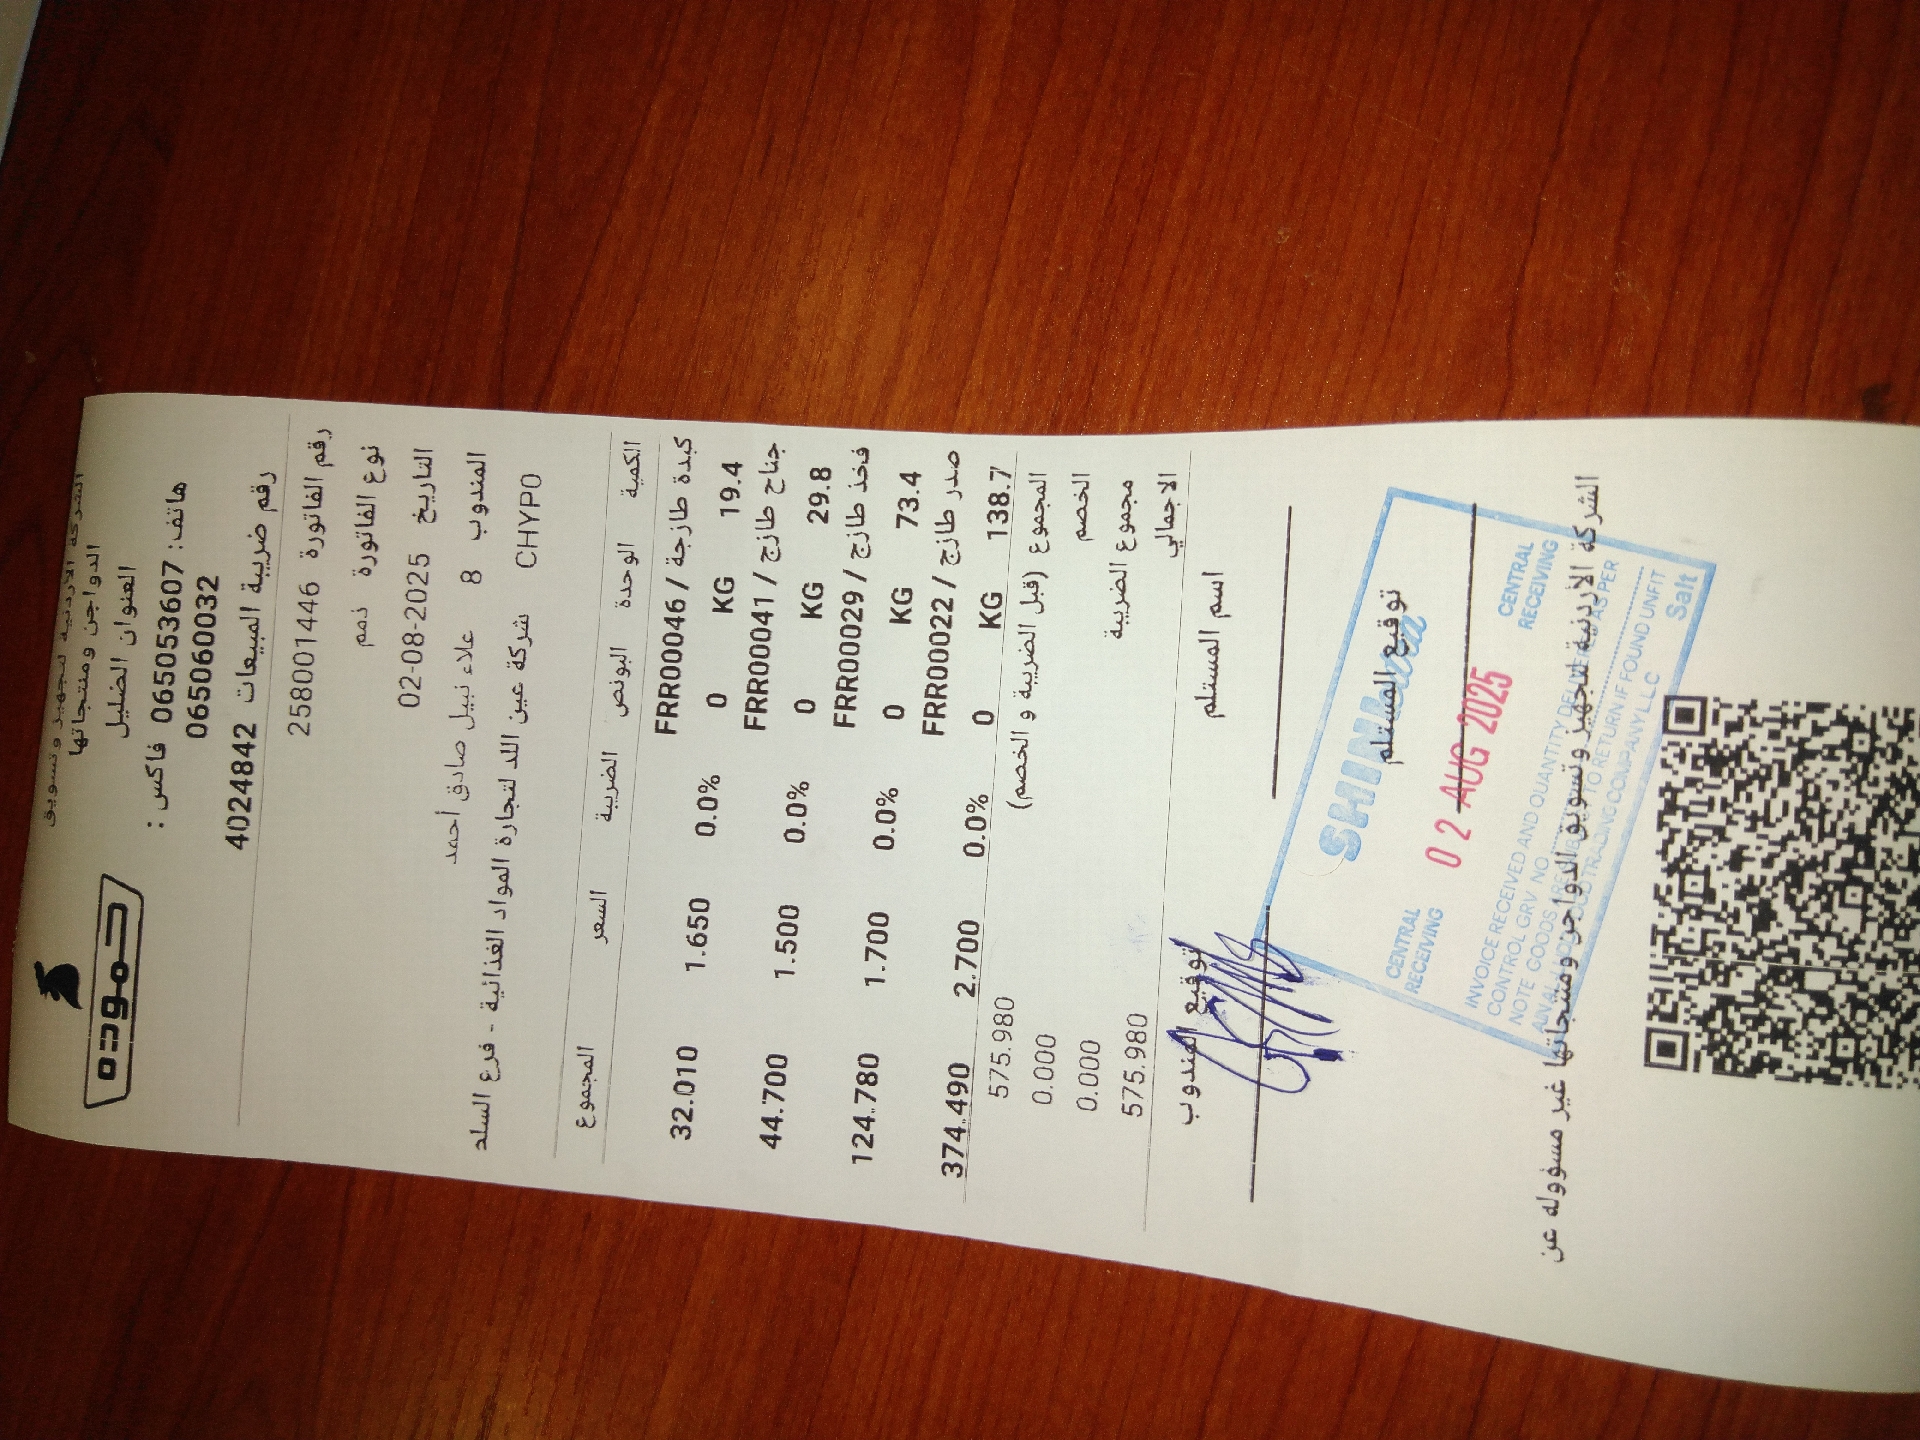 حموده
الشركة الأردنية لتجهيز وتسويق
الدواجن ومنتجاتها
العنوان الضليل
هاتف: 065053607 فاكس :
065060032
رقم ضريبة المبيعات 4024842
رقم الفاتورة 258001446
نوع الفاتورة ذمم
التاريخ 02-08-2025
المندوب 8 علاء نبيل صادق أحمد
CHYP0 شركة عين اللد لتجارة المواد الغذائية - فرع السلد
الكمية الوحدة البونص الضريبة السعر المجموع
كبدة طازجة / FRR00046
19.4 KG 0 0.0% 1.650 32.010
جناح طازج / FRR00041
29.8 KG 0 0.0% 1.500 44.700
فخذ طازج / FRR00029
73.4 KG 0 0.0% 1.700 124.780
صدر طازج / FRR00022
138.7 KG 0 0.0% 2.700 374.490
المجموع (قبل الضريبة و الخصم) 575.980
الخصم 0.000
مجموع الضريبة 0.000
الاجمالي 575.980
اسم المستلم توقيع المندوب
توقيع المستلم
CENTRAL RECEIVING
02 AUG 2025
CENTRAL RECEIVING
INVOICE RECEIVED AND QUANTITY AS PER
CONTROL GRV NO.
NOTE GOODS TO RETURN IF FOUND UNFIT
TRADING COMPANY LLC Salt
الشركة الأردنية لتجهيز وتسويق الدواجن ومنتجاتها غير مسؤوله عن